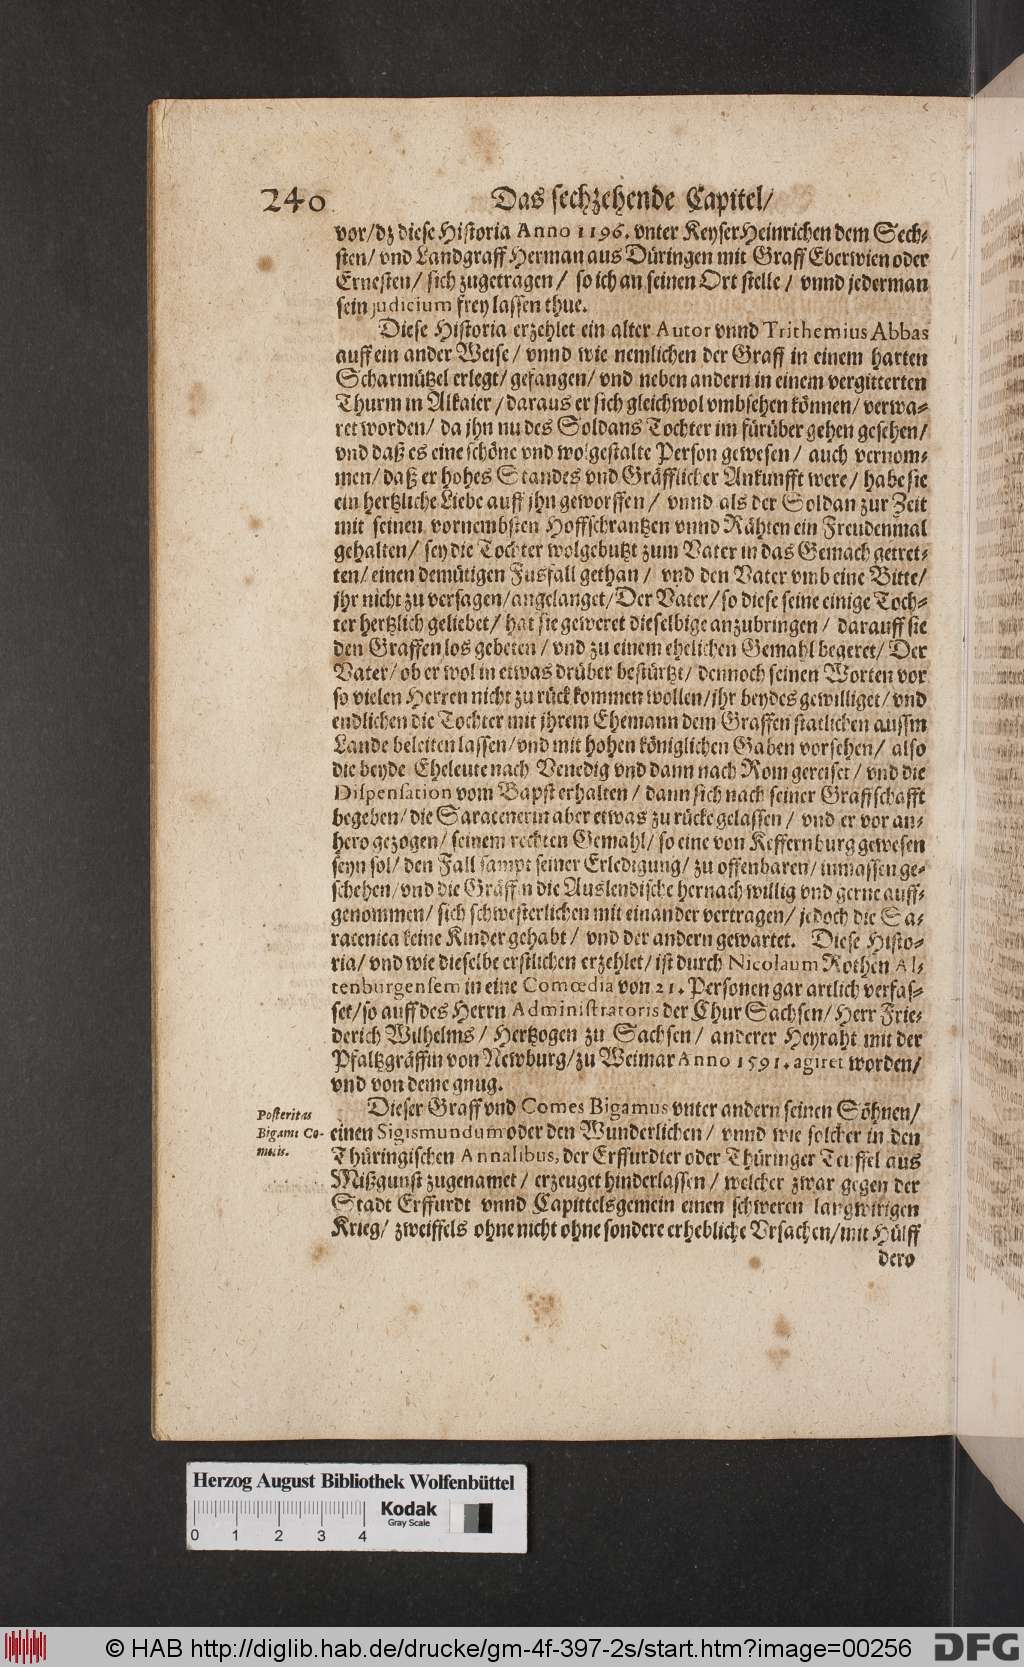 240 Das sechzehende Capitel/
vor/dz diese Historia Anno 1196. vnter Keyser Heinrichen dem Sech-
sten/ vnd Landgraff Herman aus Düringen mit Graff Eberwien oder
Ernesten/ sich zugetragen/ so ich an seinen Ort stelle/ vnnd jederman
sein judicium frey lassen thue.
Diese Historia erzehlet ein alter Autor vnnd Trithemius Abbas
auff ein ander Weise/ vnnd wie nemlichen der Graff in einem harten
Scharmützel erlegt/ gefangen/ vnd neben andern in einem vergitterten
Thurm in Alkaier/daraus er sich gleichwol vmbsehen können/ verwa-
ret worden/ da jhn nu des Soldans Tochter im fürüber gehen gesehen/
vnd daß es eine schöne vnd wolgestalte Person gewesen/ auch vernom-
men/ daß er hohes Standes vnd Gräfflicher Ankunfft were/ habe sie
ein hertzliche Liebe auff jhn geworffen/ vnnd als der Soldan zur Zeit
mit seinen vornembsten Hoffschrantzen vnnd Rähten ein Freudenmal
gehalten/ sey die Tochter wolgebutzt zum Vater in das Gemach getret-
ten/ einen demütigen Fusfall gethan/ vnd den Vater vmb eine Bitte/
jhr nicht zu versagen/angelanget/Der Vater/so diese seine einige Toch-
ter hertzlich geliebet/ hat sie geweret dieselbige anzubringen/ darauff sie
den Graffen los gebeten/ vnd zu einem ehelichen Gemahl begeret/ Der
Vater/ ob er wol in etwas drüber bestürtzt/ dennoch seinen Worten vor
so vielen Herren nicht zu rück kommen wollen/jhr beydes gewilliget/ vnd
endlichen die Tochter mit jhrem Ehemann dem Graffen statlichen aussm
Lande beleiten lassen/vnd mit hohen königlichen Gaben vorsehen/ also
die beyde Eheleute nach Venedig vnd dann nach Rom gereiset/ vnd die
Dispensation vom Bapst erhalten/ dann sich nach seiner Graffschafft
begeben/ die Saracenerin aber etwas zu rücke gelassen/ vnd er vor an-
hero gezogen/ seinem rechten Gemahl/ so eine von Keffernburg gewesen
seyn sol/ den Fall sampt seiner Erledigung/ zu offenbaren/ inmassen ge-
schehen/ vnd die Gräffin die Auslendische hernach willig vnd gerne auff-
genommen/ sich schwesterlichen mit einander vertragen/ jedoch die Sa-
racenica keine Kinder gehabt/ vnd der andern gewartet. Diese Histo-
ria/ vnd wie dieselbe erstlichen erzehlet/ ist durch Nicolaum Rothen Al-
tenburgensem in eine Comœdia von 21. Personen gar artlich verfas-
set/so auff des Herrn Administratoris der Chur Sachsen/ Herr Frie-
derich Wilhelms/ Hertzogen zu Sachsen/ anderer Heyraht mit der
Pfaltzgräffin von Newburg/zu Weimar Anno 1591. agiret worden/
vnd von deme gnug.
Posteritas
Bigami Co-
mitis.
Dieser Graff vnd Comes Bigamus vnter andern seinen Söhnen/
einen Sigismundum oder den Wunderlichen/ vnnd wie solcher in den
Thüringischen Annalibus, der Erffurdier oder Thüringer Teuffel aus
Mißgunst zugenamet/ erzeuget hinderlassen/ welcher zwar gegen der
Stadt Erffurdt vnnd Capittelsgemein einen schweren langwirigen
Krieg/ zweiffels ohne nicht ohne sondere erhebliche Vrsachen/mit Hülff
dero
Herzog August Bibliothek Wolfenbüttel
Kodak
Gray Scale
0 1 2 3 4
© HAB http://diglib.hab.de/drucke/gm-4f-397-2s/start.htm?image=00256 DFG